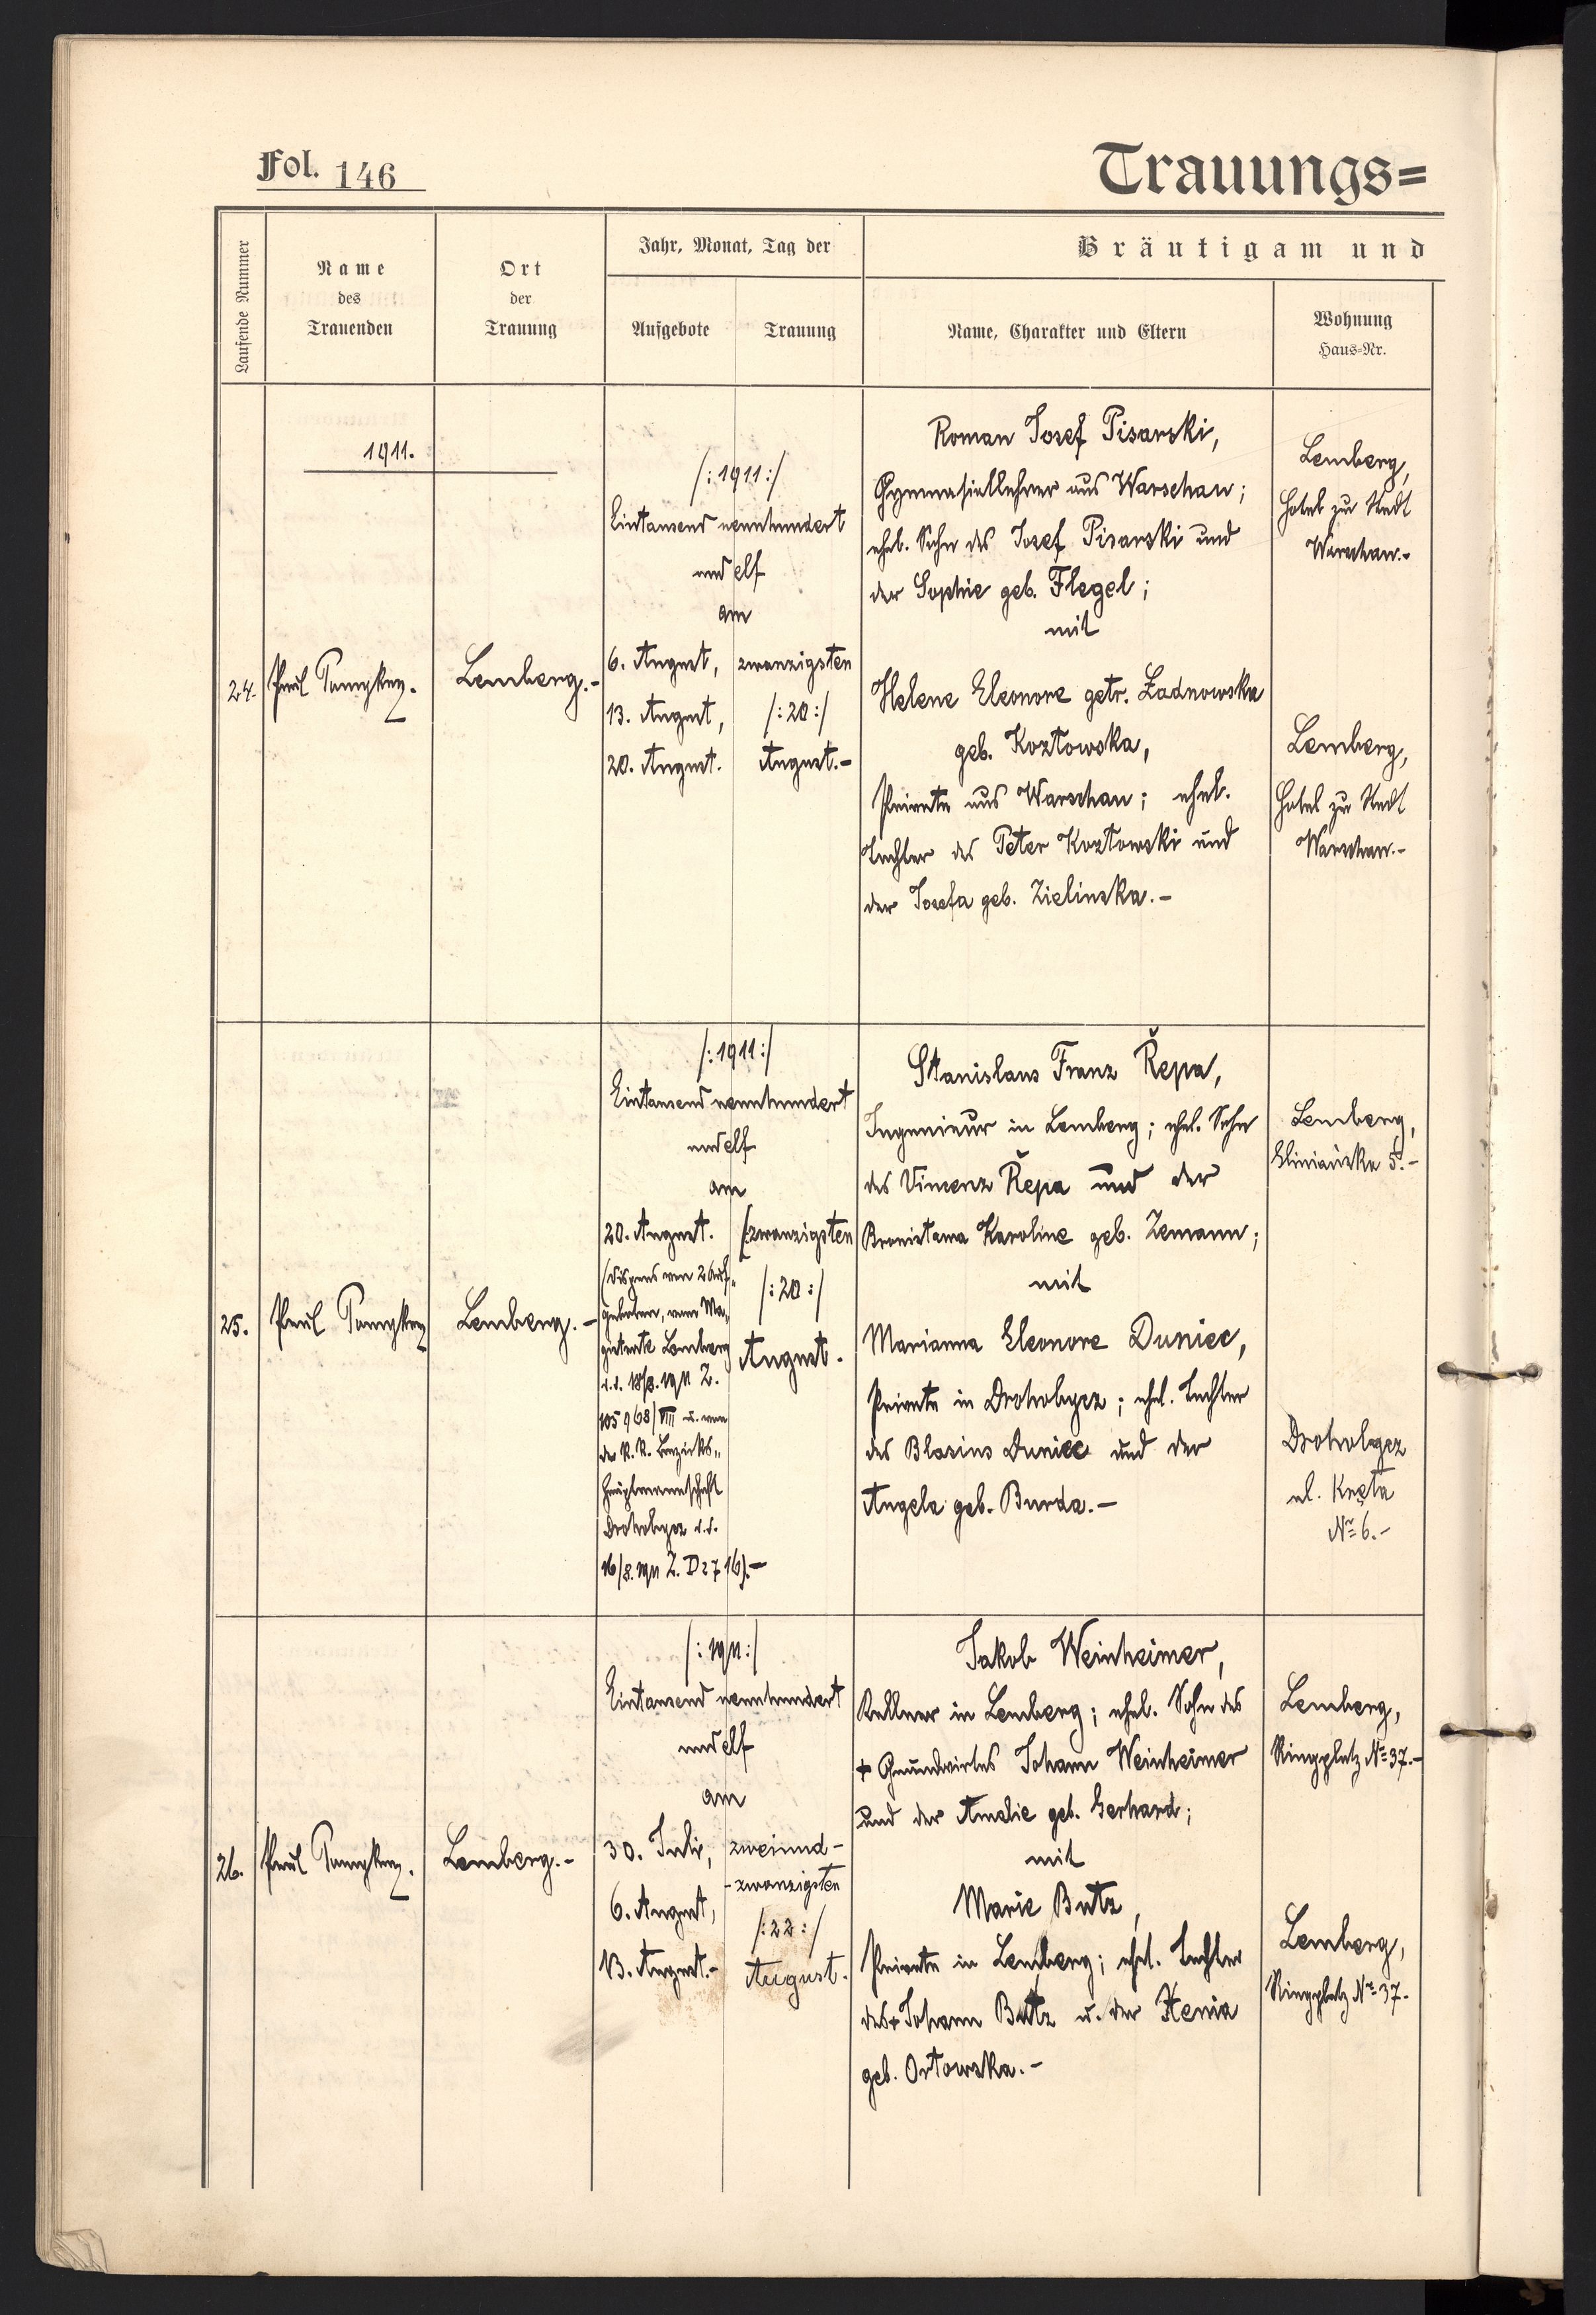 Fol. 146
Trauungs=
Laufende Nummer
Name
des
Trauenden
Ort
der
Trauung
Jahr, Monat, Tag der
Aufgebote
Trauung
Bräutigam und
Name, Charakter und Eltern
Wohnung
Haus-Nr.
1911.
24.
Paul
Lemberg.-
/:1911:/
Eintausend neunhundert
und elf
am
6. August,
13. August,
20. August.
zwanzigsten
/:20:/
August.-
Roman Josef Pisarski,
Gymnasiallehrer aus Warschau;
ehel. Sohn des Josef Pisarski und
der Sophie geb. Flegel;
mit
Helene Eleonore getr. Żadnowska
geb. Kozłowska,
Private aus Warschau; ehel.
Tochter des Peter Kozłowski und
der Josefa geb. Zielinska.-
Lemberg,
Hotel zu Stadt
Warschau.-
Lemberg,
Hotel zu Stadt
Warschau.-
25.
Paul
Lemberg.-
/:1911:/
Eintausend neunhundert
und elf
am
20. August.
(Dispens von 2 Auf„
geboten, vom Ma„
gistrate Lemberg
d.d. 18/8. 1911 Z.
105968/VIII u. von
der K.K. Bezirks„
hauptmannschaft
Drohobycz d.d.
16/8. 1911 Z. D 27 16).-
zwanzigsten
/:20:/
August.
Stanislaus Franz Řepa,
Ingenieur in Lemberg; ehel. Sohn
des Vinzenz Řepa und der
Bronisława Karoline geb. Zemann;
mit
Marianna Eleonore Duniec,
Private in Drohobycz; ehel. Tochter
des Blasius Duniec und der
Angela geb. Burda.-
Lemberg,
5.-
Drohobycz
ul. Kręta
No 6.-
26.
Paul
Lemberg.-
/:1911:/
Eintausend neunhundert
und elf
am
30. Juli,
6. August,
13. August.-
zweiund-
-zwanzigsten
/:22:/
August.
Jakob Weinheimer,
Kellner in Lemberg; ehel. Sohn des
+ Grundwirtes Johann Weinheimer
und der Amalie geb. Gerhard;
mit
Marie Butz,
Private in Lemberg; ehel. Tochter
des + Johann Butz u. der Xenia
geb. Orłowska.-
Lemberg,
Ringplatz No 37.-
Lemberg,
Ringplatz No 37.